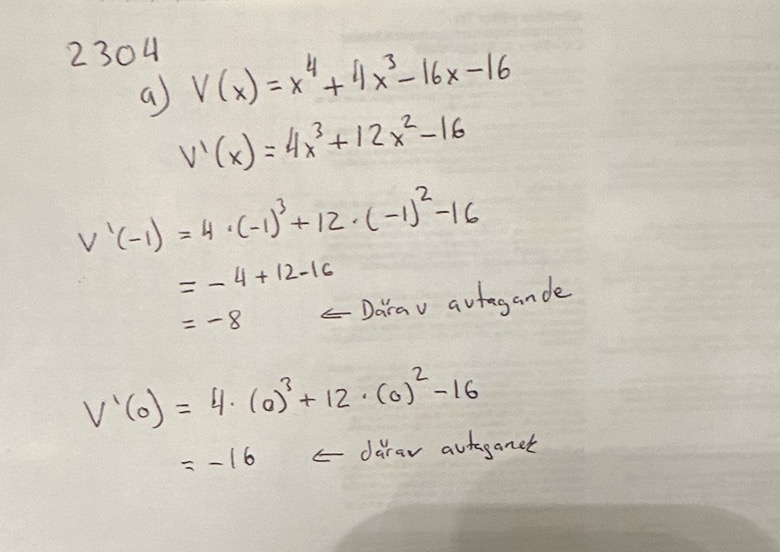 2304
a) V(x) = x⁴ + 4x³ - 16x - 16
V'(x) = 4x³ + 12x² - 16
V'(-1) = 4 · (-1)³ + 12 · (-1)² - 16
= -4 + 12 - 16
= -8 ⇐ Därav avtagande
V'(0) = 4 · (0)³ + 12 · (0)² - 16
= -16 ⇐ därav